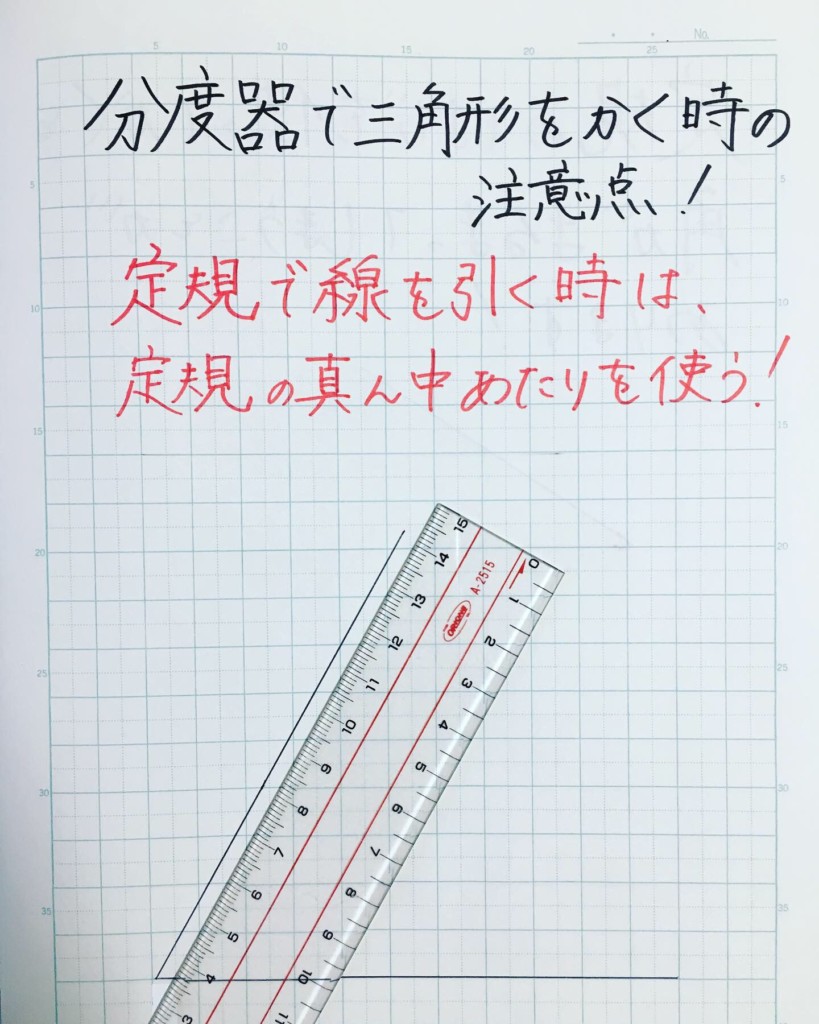 5 10 15 20 25
No.
分度器で三角形をかく時の
注意点!
定規で線を引く時は、
定規の真ん中あたりを使う!
5 5
10 10
15 15
20 20
25 25
30 30
35 35
15 14 13 12 11 10 9 8 7 6 5 4 3
A-2515
0 1 2 3 4 5 6 7 8 9 10 11